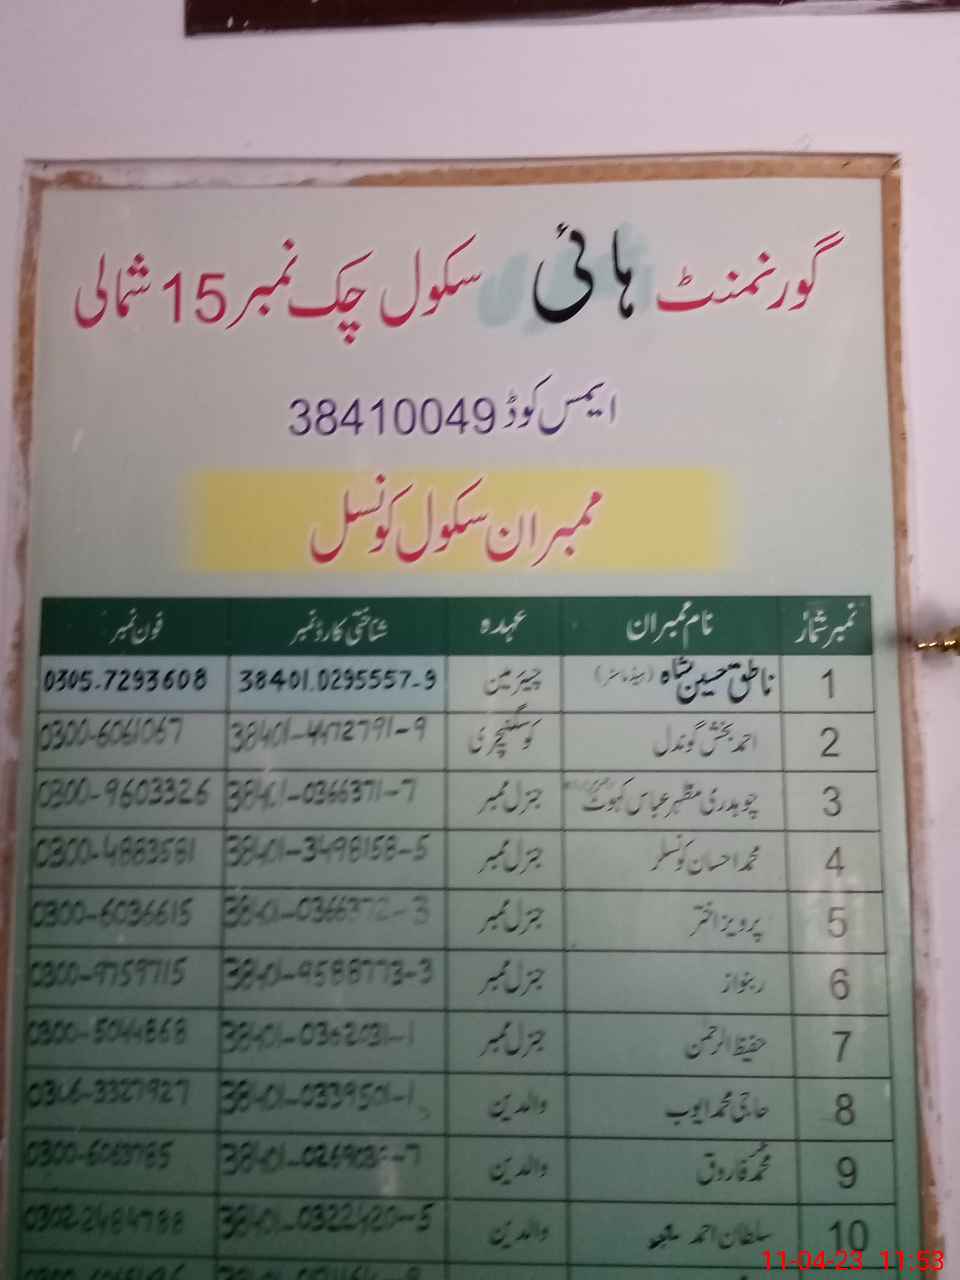 گورنمنٹ ہائی سکول چک نمبر 15 شمالی
ایمس کوڈ 38410049
ممبران سکول کونسل
نمبر شمار نام ممبران عہدہ شناختی کارڈ نمبر فون نمبر
1 ناطق حسین شاہ (ہیڈ ماسٹر) چیئرمین 38401.0295557-9 0305.7293608
2 احمد بخش گوندل کوسیکٹری 38401-4472791-9 0300-6061067
3 چوہدری مظہر عباس کہوٹ جنرل ممبر 38401-0366371-7 0300-9603326
4 محمد احسان کونسلر جنرل ممبر 38401-3498158-5 0300-4883581
5 پرویز اختر جنرل ممبر 0300-6036615
6 ربنواز جنرل ممبر 38401-9588773-3 0300-9759715
7 حفیظ الرحمن جنرل ممبر 38401-0362031-1 0300-5044868
8 حاجی محمد ایوب والدین 38401-0339501-1 0346-3327927
9 محمد فاروق والدین 0300-6063785
10 سلطان احمد والدین 38401-0322420-5 0302.2484788
11-04-23 11:53